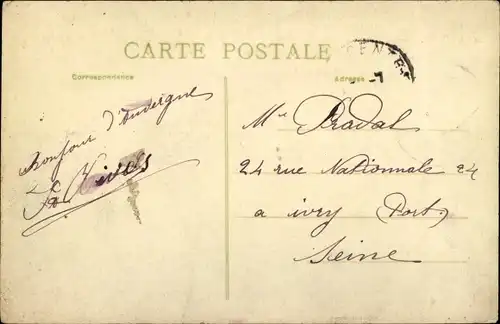 CARTE POSTALE
Correspondance
Adresse
Bonjour d'Auvergne
Mr Pradal
24 rue Nationale 24
a ivry (Port)
Seine